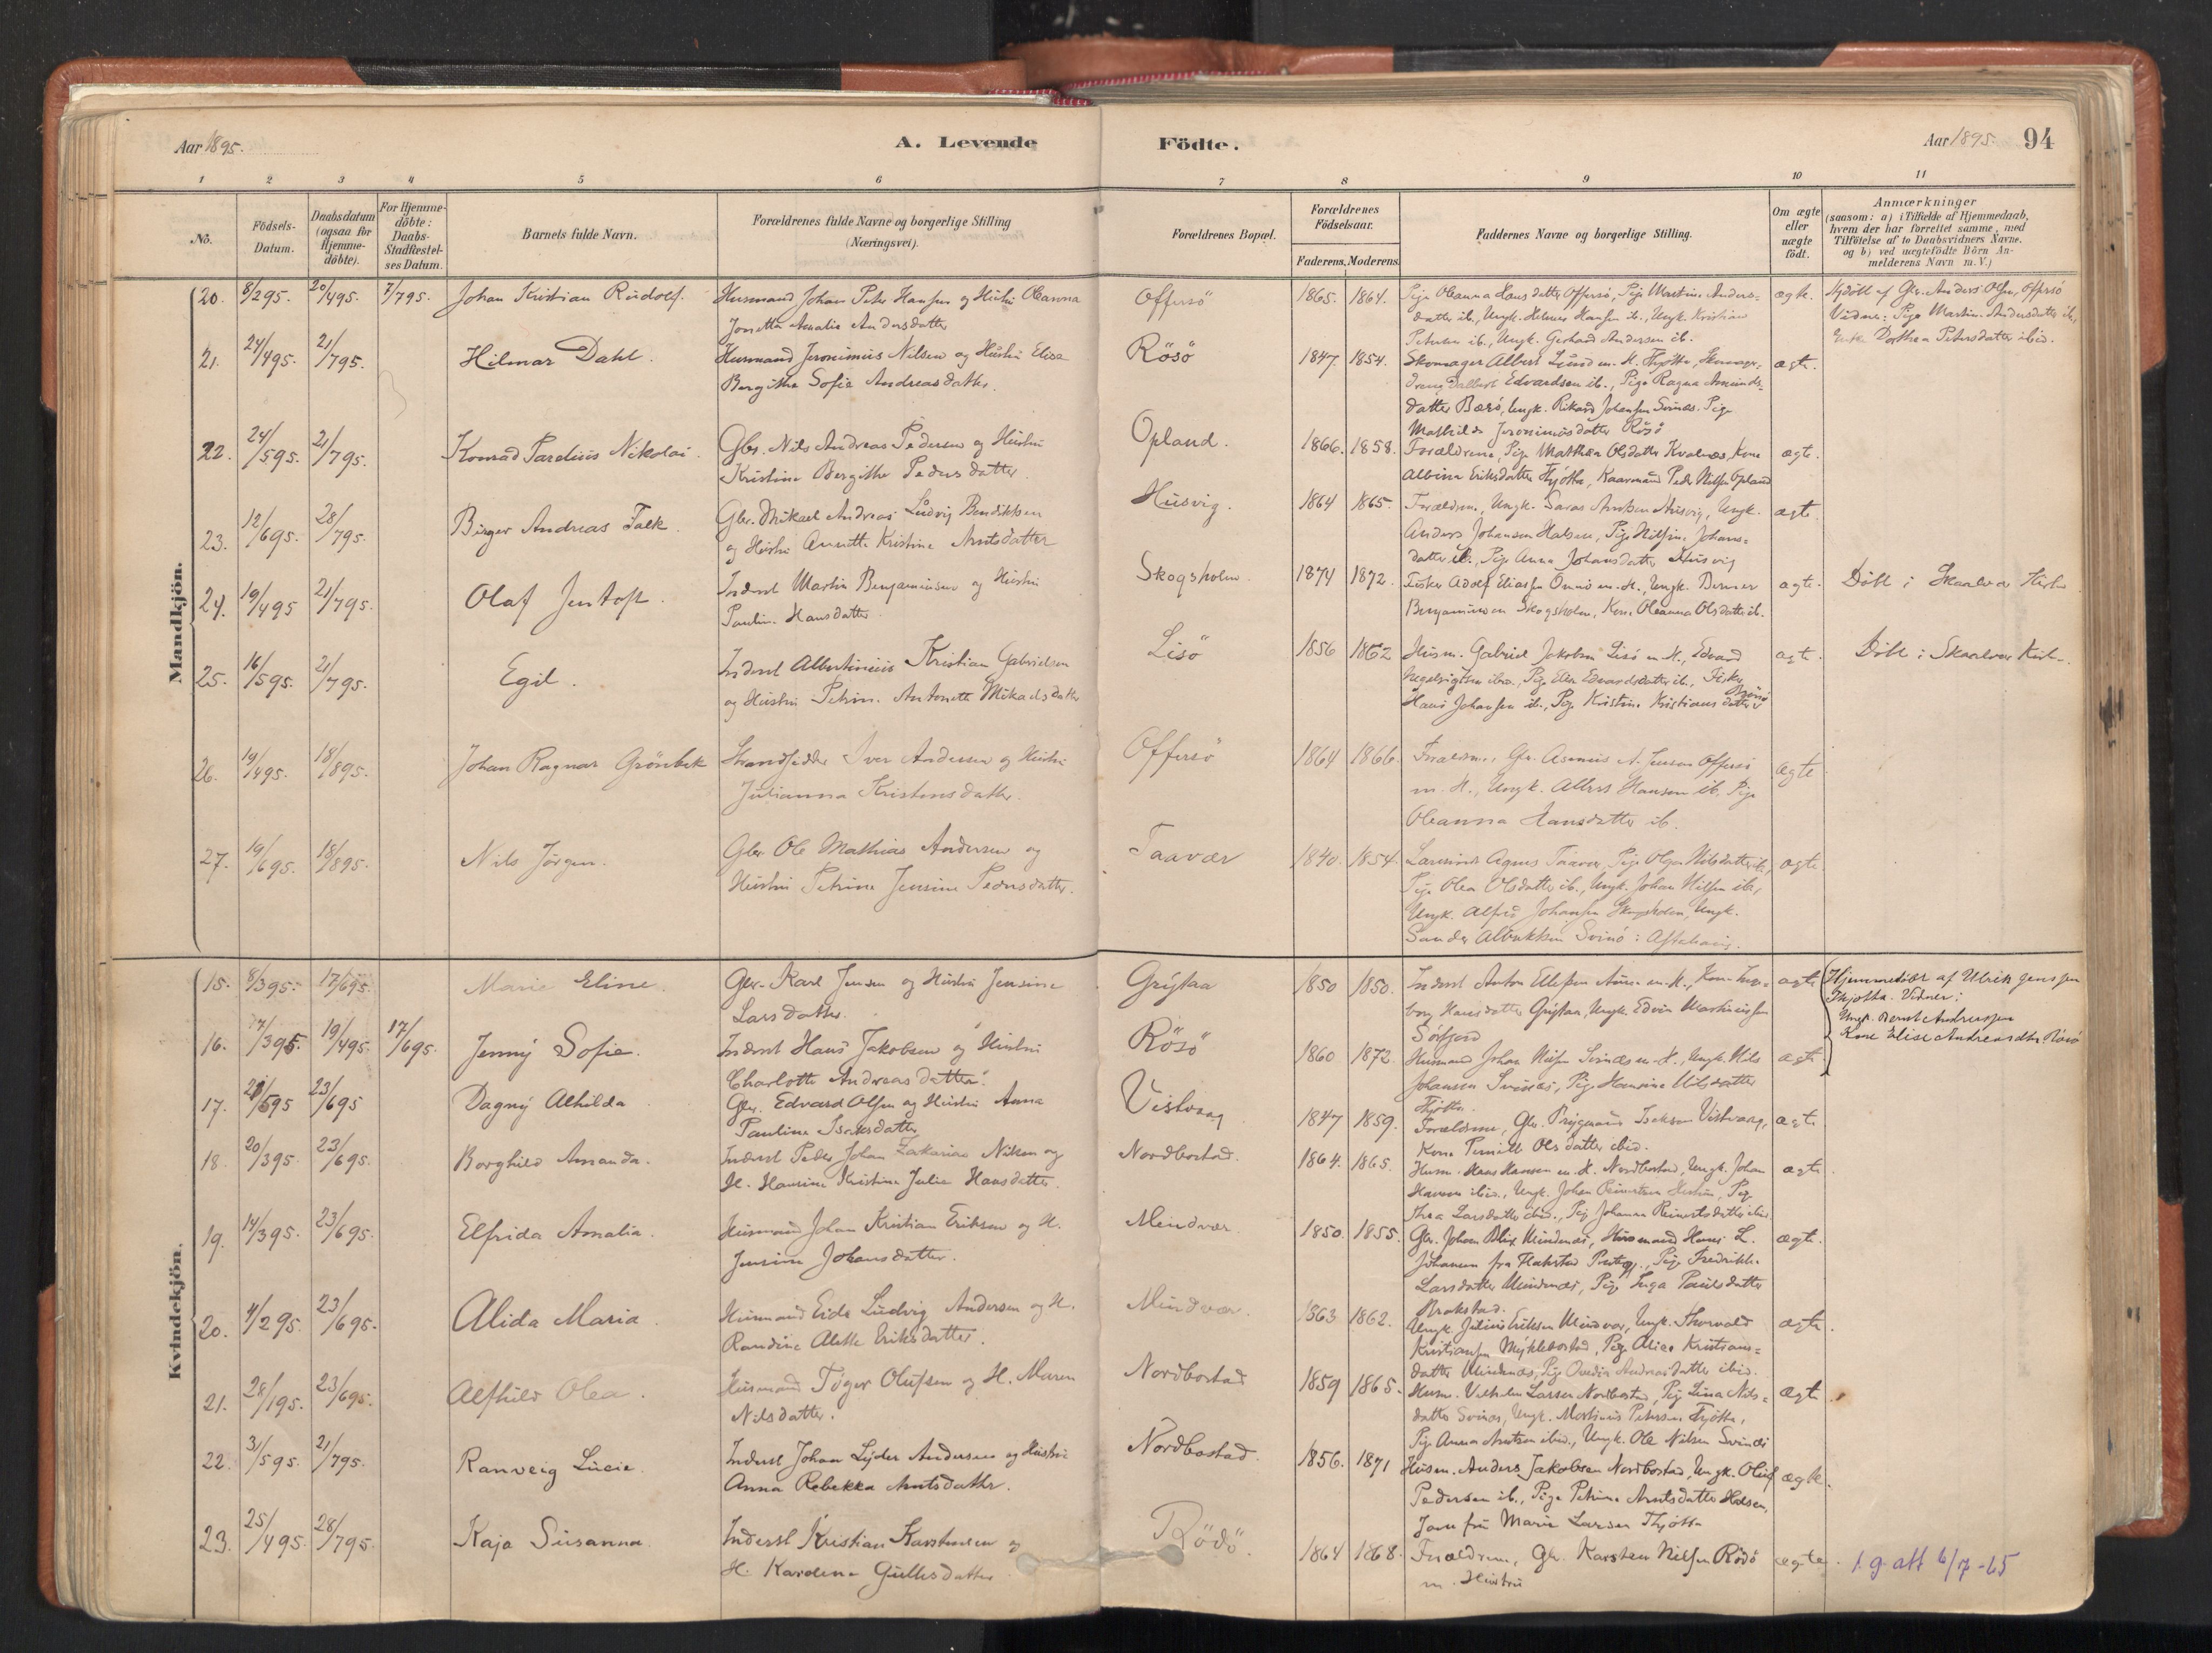 Aar 1895.
A. Levende
Födte.
Aar 1895. 94
1 2 3 4 5 6 7 8 9 10 11
No.
Födsels-Datum.
Daabsdatum (ogsaa for Hjemme-döbte).
For Hjemme-döbte: Daabs-Stadfæstel-ses Datum.
Barnets fulde Navn.
Forældrenes fulde Navne og borgerlige Stilling (Næringsvei).
Forældrenes Bopæl.
Forældrenes Födselsaar.
Faderens. Moderens.
Faddernes Navne og borgerlige Stilling.
Om ægte eller uægte födt.
Anmærkninger (saasom: a) i Tilfælde af Hjemmedaab, hvem der har forrettet samme, med Tilföielse af to Daabsvidners Navne, og b) ved uægtefödte Börn An-melderens Navn m.V.)
Mandkjön.
20. 8/2 95. 20/4 95. 7/7 95. Johan Kristian Rudolf. Husmand Johan Peter Hansen og Hustru Oleanna
Jonetta Amalia Andersdatter
Offersö 1865. 1864. Pige Oleanna Hansdatter Offersö, Pige Martine Anders-
datter ib., Ungk. Helmer Hansen ib., Ungk. Kristian
Petersen ib., Ungk. Gerhard Andersen ib.
ægte. Hjdöbt af Gbr. Anders Olsen, Offersö
Vidner: Pige Martine Andersdatter ib.,
Enke Dorthea Petersdatter ibid.
21. 24/4 95. 21/7 95. Hilmar Dahl. Husmand Jeronimus Nilsen og Hustru Elise
Bergitha Sofie Andreasdatter.
Rösö 1847. 1854. Skomager Albert Lund m. H. Thjötta,
Dalbert Edvardsen ib., Pige Ragna Amunds-
datter Bærö, Ungk. Rikard Johansen Svinæs. Pige
Mathilde Jeronimusdatter Rösö
ægte.
22. 24/5 95. 21/7 95. Konrad Pardius Nikolai. Gbr. Nils Andreas Pedersen og Hustru
Kristine Bergitha Pedersdatter.
Opland. 1866. 1858. Forældrene, Pige Mathea Olsdatter Kvalnes, Kone
Albina Eriksdatter Thjötta, Kaarmand Peder Nilsen Opland
ægte.
23. 12/6 95. 28/7 95. Birger Andreas Falk. Gbr. Mikael Andreas Ludvig Bendiksen
og Hustru Anneth Kristine Arntsdatter
Husvig. 1864 1865. Forældrene, Ungk. Arntsen Husvig, Ungk.
Anders Johansen Halsen, Pige Nilsine Johans-
datter ib., Pige Anna Johansdatter Husvig
ægte.
24. 19/4 95 21/7 95. Olaf Jentoft. Inderst Martin Benjaminsen og Hustru
Pauline Hansdatter.
Skogsholm. 1874 1872. Fisker Adolf Eliasen Önnö m. H., Ungk. Berner
Benjaminsen Skogsholm, Kone Oleanna Olsdatter ib.
ægte. Döbt i Skaalvær Kirke
25. 16/5 95. 21/7 95. Egil. Inderst Albertinius Kristian Gabrielsen
og Hustru Petrine Antonette Mikaelsdatter
Lisö 1856 1862 Husm. Gabriel Jakobsen Lisö m H., Edvard
ibid., Pige Elen Edvardsdatter ib., Fisker
Hans Johansen ib., Pige Kristine Kristiansdatter
ægte. Döbt i Skaalvær Kirke.
26. 19/4 95. 18/8 95. Johan Ragnar Grönbek Strandsidder Iver Andersen og Hustru
Julianna Kristensdatter.
Offersö 1864 1866. Forældrene, Gbr. Asmus A. Jensen Offersö
m. H., Ungk. Albers Hansen ib. Pige
Oleanna Hansdatter ib.
ægte
27. 19/6 95. 18/8 95. Nils Jörgen. Gbr Ole Mathias Andersen og
Hustru Petrine Jensine Pedersdatter.
Taavær 1840. 1854. Agnes Taavær, Pige Olga Nilsdatter ib.,
Pige Olea Olsdatter ib., Ungk. Johan Nilsen ib.,
Ungk. Alfred Johansen Skogsholm, Ungk.
Sander Albriktsen Svinö i Alstahaug.
ægte.
Kvindekjön.
15. 8/3 95. 17/6 95. Marie Eline. Gbr. Karl Jensen og Hustru Jensine
Larsdatter.
Grÿtaa 1850 1850. Inderst Anton Ellefsen m. H., Kone Inge-
borg Hansdatter Grÿtaa, Ungk. Edvin Martiniusen
Sörfjord
ægte
16. 17/3 95. 19/4 95. 17/6 95. Jenny Sofie. Inderst Hans Jakobsen og Hustru
Charlotte Andreasdatter.
Rösö 1860 1872. Husmand Johan Nilsen Svinæs m. H., Ungk. Nils
Johansen Svinæs, Pige Hansine Nilsdatter
Thjötta.
ægte. Hjemmedöbt af Ulrik Jenssen
Thjotta. Vidner:
Ungk. Bernt Andreassen
Kone Elise Andreasdtr. Rösö
17. 21/5 95 23/6 95 Dagny Althilda Gbr. Edvard Olsen og Hustru Anna
Pauline Isaksdatter
Vistvaag 1847 1859. Forældrene, Gbr. Isaksen Vistvaag,
Kone Pernille Olsdatter ibid.
ægte
18. 20/3 95. 23/6 95. Borghild Amanda. Inderst Peder Johan Zakarias Nilsen og
H. Hansine Kristine Julie Hansdatter.
Nordbostad. 1864. 1865. Husm. Hans Hansen m. H. Nordbostad, Ungk. Johan
Hansen ibid., Ungk. Johan Reinertsen, Pige
Thea Larsdatter ibid., Pige Johanna Reinertsdatter ibid
ægte.
19. 14/3 95. 23/6 95. Elfrida Amalia. Husmand Johan Kristian Eriksen og H.
Jensine Johansdatter.
Mindvær 1850. 1855. Gbr. Johan Blix Mindnæs, Husmand Hans L.
Johansen fra Hatstad Prestegj., Pige Fredrikke
Larsdatter Mindnæs, Pige Inga Paulsdatter
Brakstad.
ægte.
20. 4/2 95. 23/6 95. Alida Maria. Husmand Eide Ludvig Andersen og H.
Randine Alette Eriksdatter.
Mindvær. 1863 1862. Ungk. Julius Eriksen Mindvær, Ungk. Thorvald
Kristiansen Mÿklebostad, Pige Alice Kristians-
datter Mindnæs, Pige Ovedia Andreasdatter ibid.
ægte.
21. 28/1 95. 23/6 95. Alfhild Olea. Husmand Töger Olufsen og H. Maren
Nilsdatter.
Nordbostad 1859 1865. Husm. Vilhelm Larsen Nordbostad, Pige Lina Nils-
datter Svinæs, Ungk. Martinus Petersen Thjötta,
Pige Anna Arntsen ibid., Ungk. Ole Nilsen Svinæs
ægte
22. 31/5 95. 21/7 95. Ranveig Lucie. Inderst Johan Lyder Andersen og Hustru
Anna Rebekka Arntsdatter.
Nordbostad. 1856. 1871 Husm. Anders Jakobsen Nordbostad, Ungk. Oluf
Pedersen ib., Pige Petrine Arntsdatter Halsen,
Jomfru Marie Larsen Thjötta
ægte.
23. 25/4 95. 28/7 95. Kaja Susanna. Inderst Kristian Karstensen og
H. Kardine Gullesdatter
Rödö. 1864 1868. Forældrene, Gbr. Karsten Nilsen Rödö
m. Hustru
ægte. 1. g. att 6/7 - 65